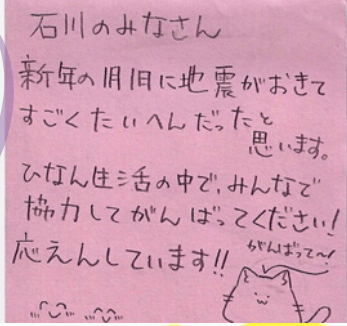 石川のみなさん
新年の1月1日に地震がおきて
すごくたいへんだったと
思います。
ひなん生活の中で、みんなで
協力してがんばってください!
応えんしています!!
がんばって〜!